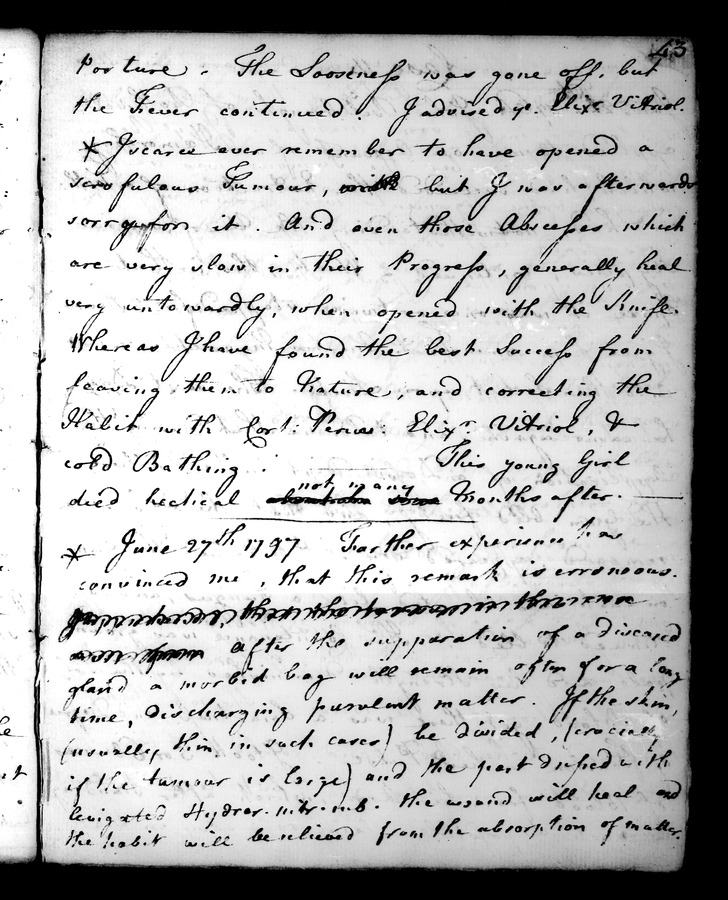 43
Posture. The Looseness was gone off, but
the Fever continued. I advised ye. Elixr Vitriol.
* I scarce ever remember to have opened a
scrofulous Tumour, but I was afterwards
sorry for it. And even those Abscesses which
are very slow in their Progress, generally heal
very untowardly, when opened with the Knife.
Whereas I have found the best Success from
leaving them to Nature, and correcting the
Habit with Cort: Peruv: Elixr. Vitriol, &
cold Bathing. This young Girl
not many
died hectical Months after.
* June 27th 1797 Farther experience has
convinced me, that this remark is erroneous.
after the suppuration of a diseased
gland a morbid bag will remain often for a long
time, discharging purulent matter. If the skin,
(usually thin in such cases) be divided, (crucially
if the tumour is large) and the part dressed with
levigated Hydrar. nitr. rub. the wound will heal and
the habit will be relieved from the absorption of matter.